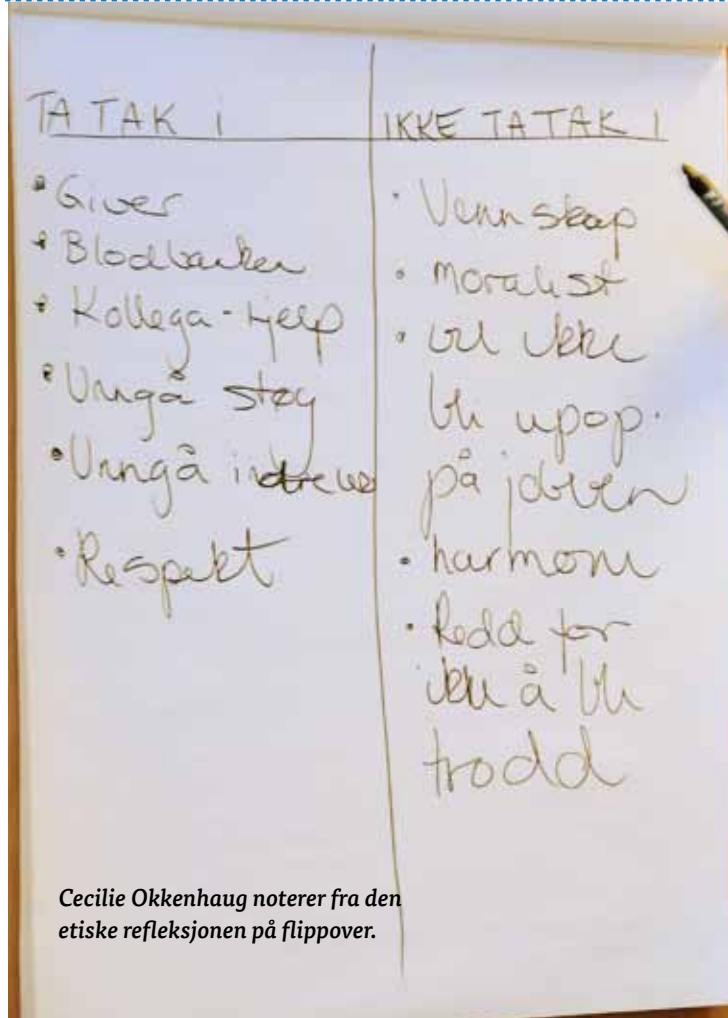 TA TAK i
• Giver
• Blodbanken
• Kollega-hjelp
• Unngå støy
• Unngå
• Respekt
IKKE TA TAK I
• Vennskap
• moralist
• vil ikke
bli upop.
på jobben
• harmoni
• Redd for
ikke å bli
trodd
Cecilie Okkenhaug noterer fra den
etiske refleksjonen på flippover.